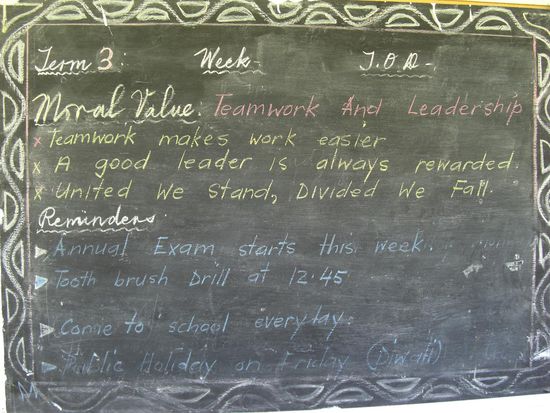 Term 3: Week- T.O.D-
Moral Value: Teamwork And Leadership
x Teamwork makes work easier
x A good leader is always rewarded.
x United We Stand, Divided We Fall.
Reminders:
Annual Exam starts this week.
Tooth brush Drill at 12.45
Come to school everyday.
Public Holiday on Friday (Diwali)
M